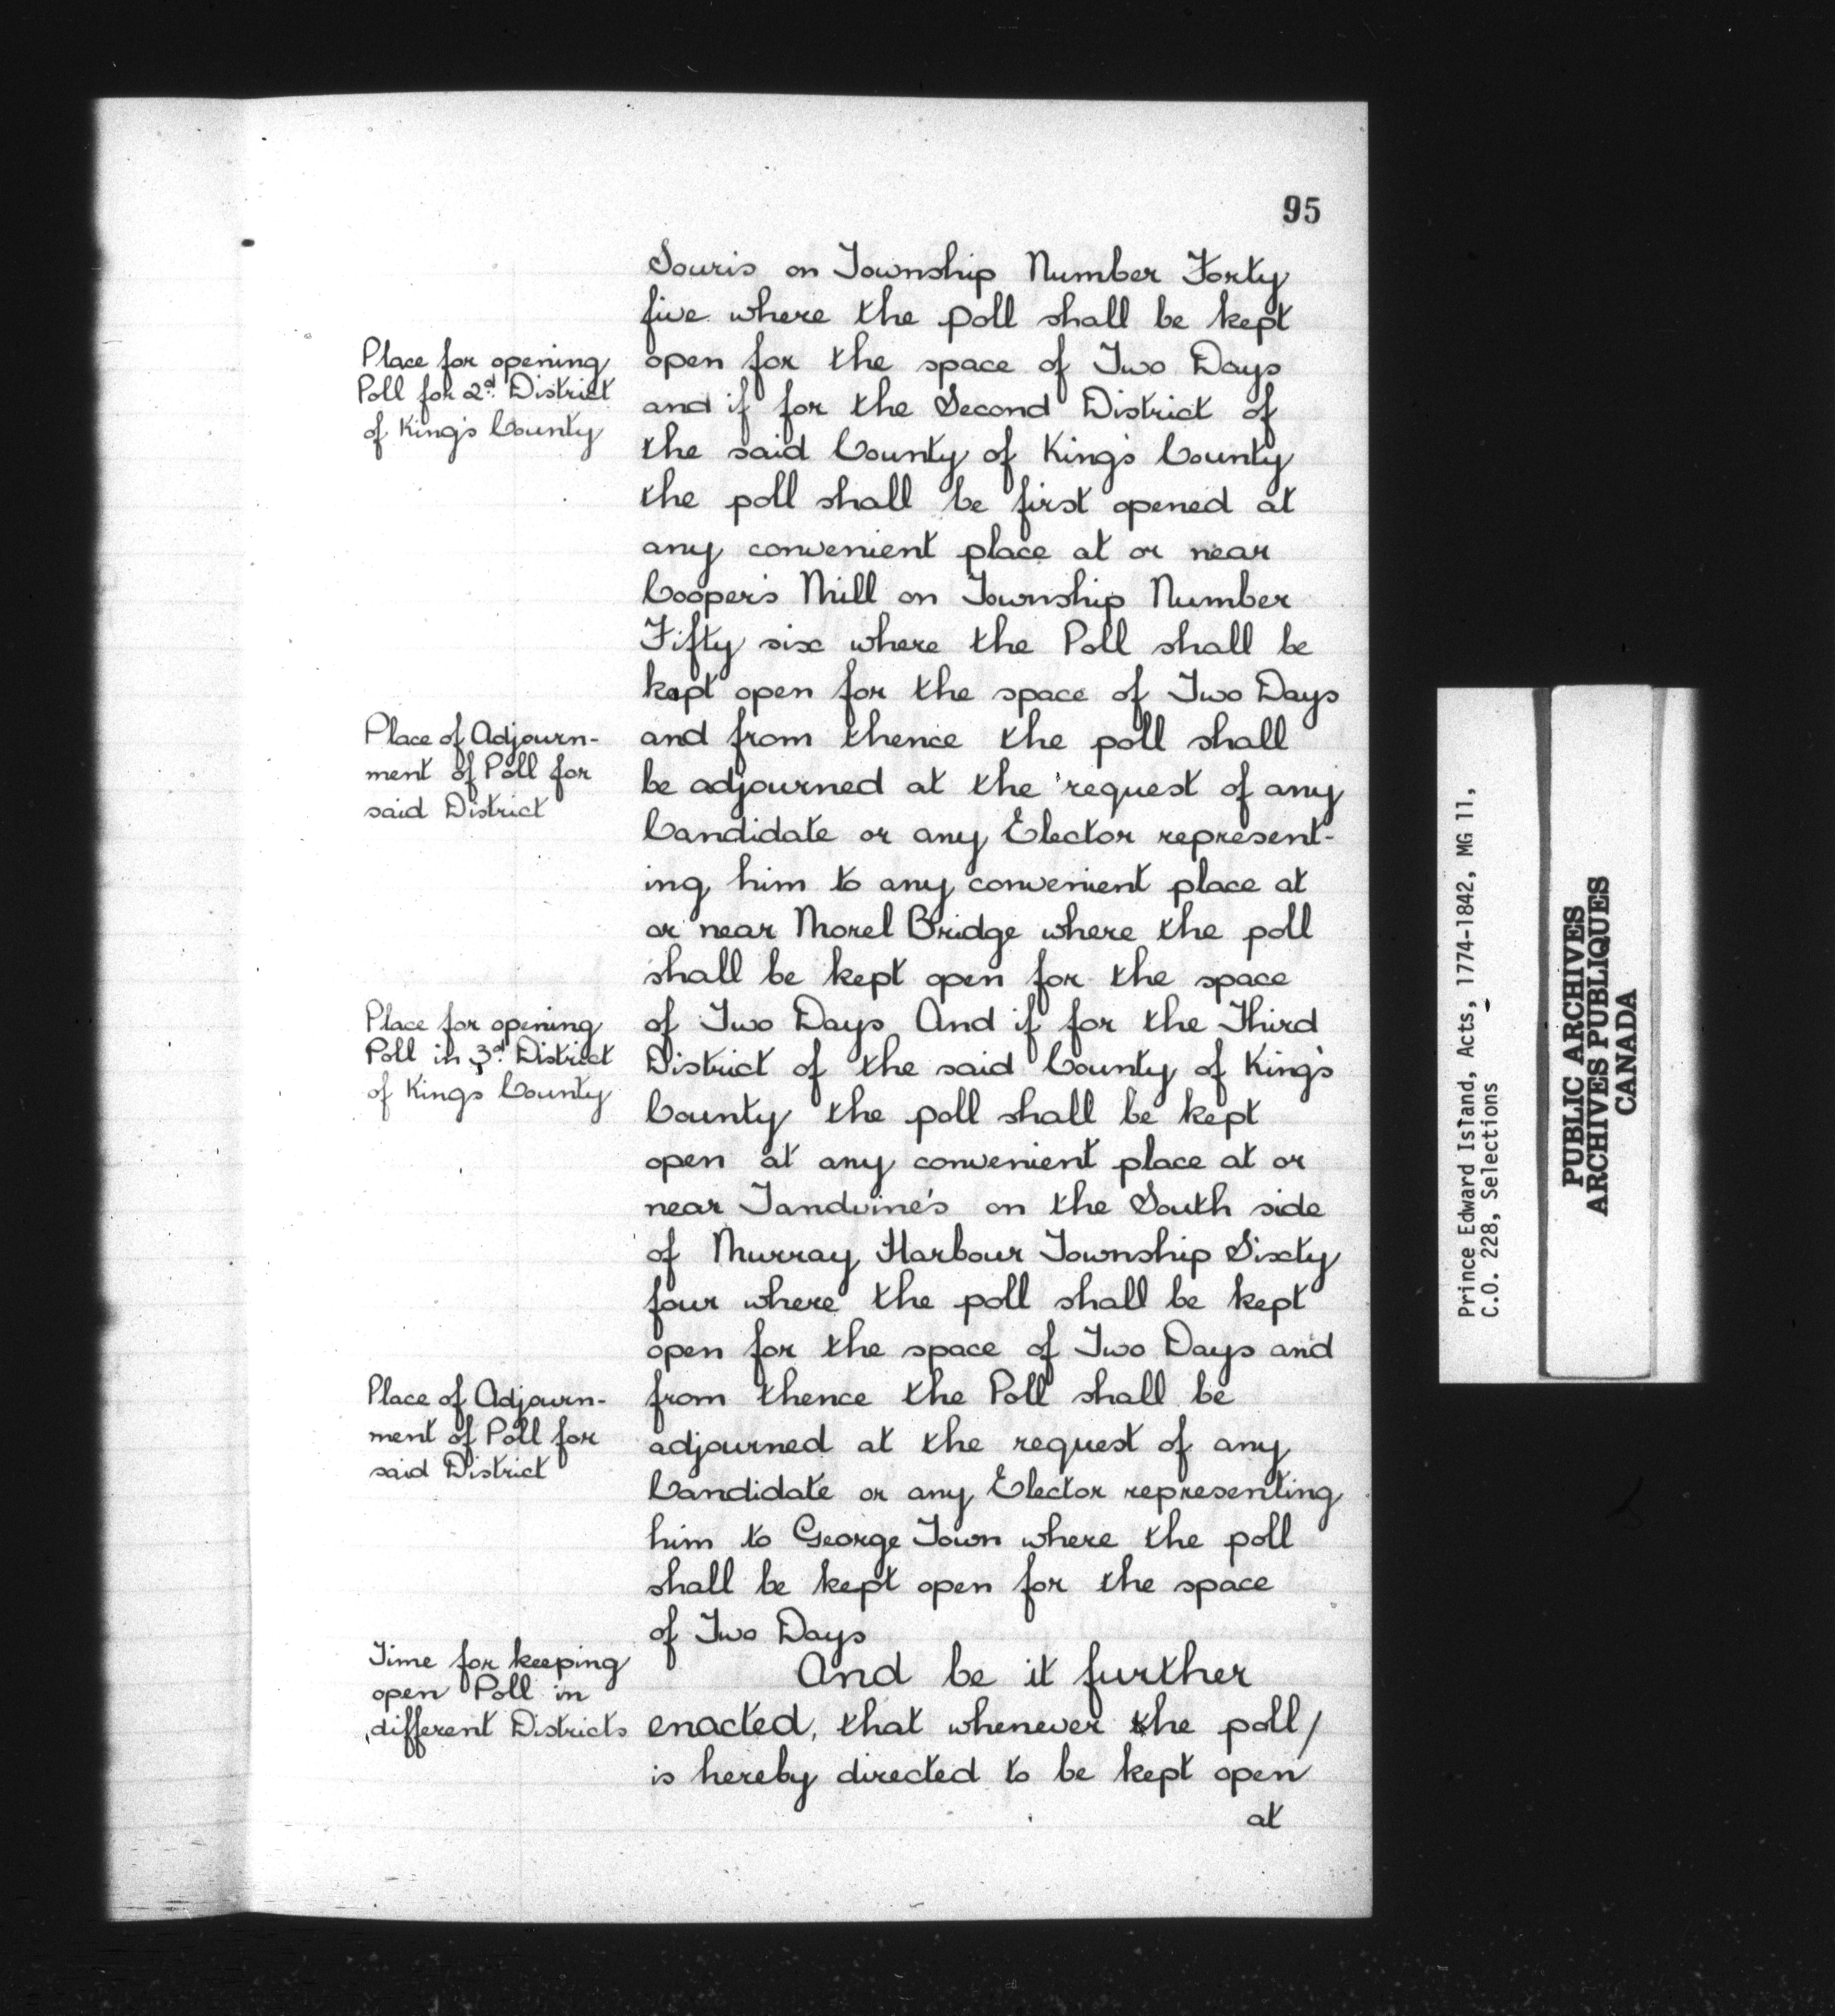 95
Souris on Township Number Forty
five where the poll shall be kept
Place for opening
Poll for 2d. District
of King's County
open for the space of Two Days
and if for the Second District of
the said County of King's County
the poll shall be first opened at
any convenient place at or near
Cooper's Mill on Township Number
Fifty six where the Poll shall be
kept open for the space of Two Days
Place of Adjourn-
ment of Poll for
said District
and from thence the poll shall
be adjourned at the request of any
Candidate or any Elector represent-
ing him to any convenient place at
or near Morel Bridge where the poll
shall be kept open for the space
Place for opening
Poll in 3d. District
of King's County
of Two Days And if for the Third
District of the said County of King's
County the poll shall be kept
open at any convenient place at or
near Tandvine's on the South side
of Murray Harbour Township Sixty
four where the poll shall be kept
open for the space of Two Days and
Place of Adjourn-
ment of Poll for
said District
from thence the Poll shall be
adjourned at the request of any
Candidate or any Elector representing
him to George Town where the poll
shall be kept open for the space
of Two Days
Time for keeping
open Poll in
different Districts
And be it further
enacted, that whenever the poll/
is hereby directed to be kept open
at
Prince Edward Island, Acts, 1774-1842, MG 11,
C.O. 228, Selections
PUBLIC ARCHIVES
ARCHIVES PUBLIQUES
CANADA